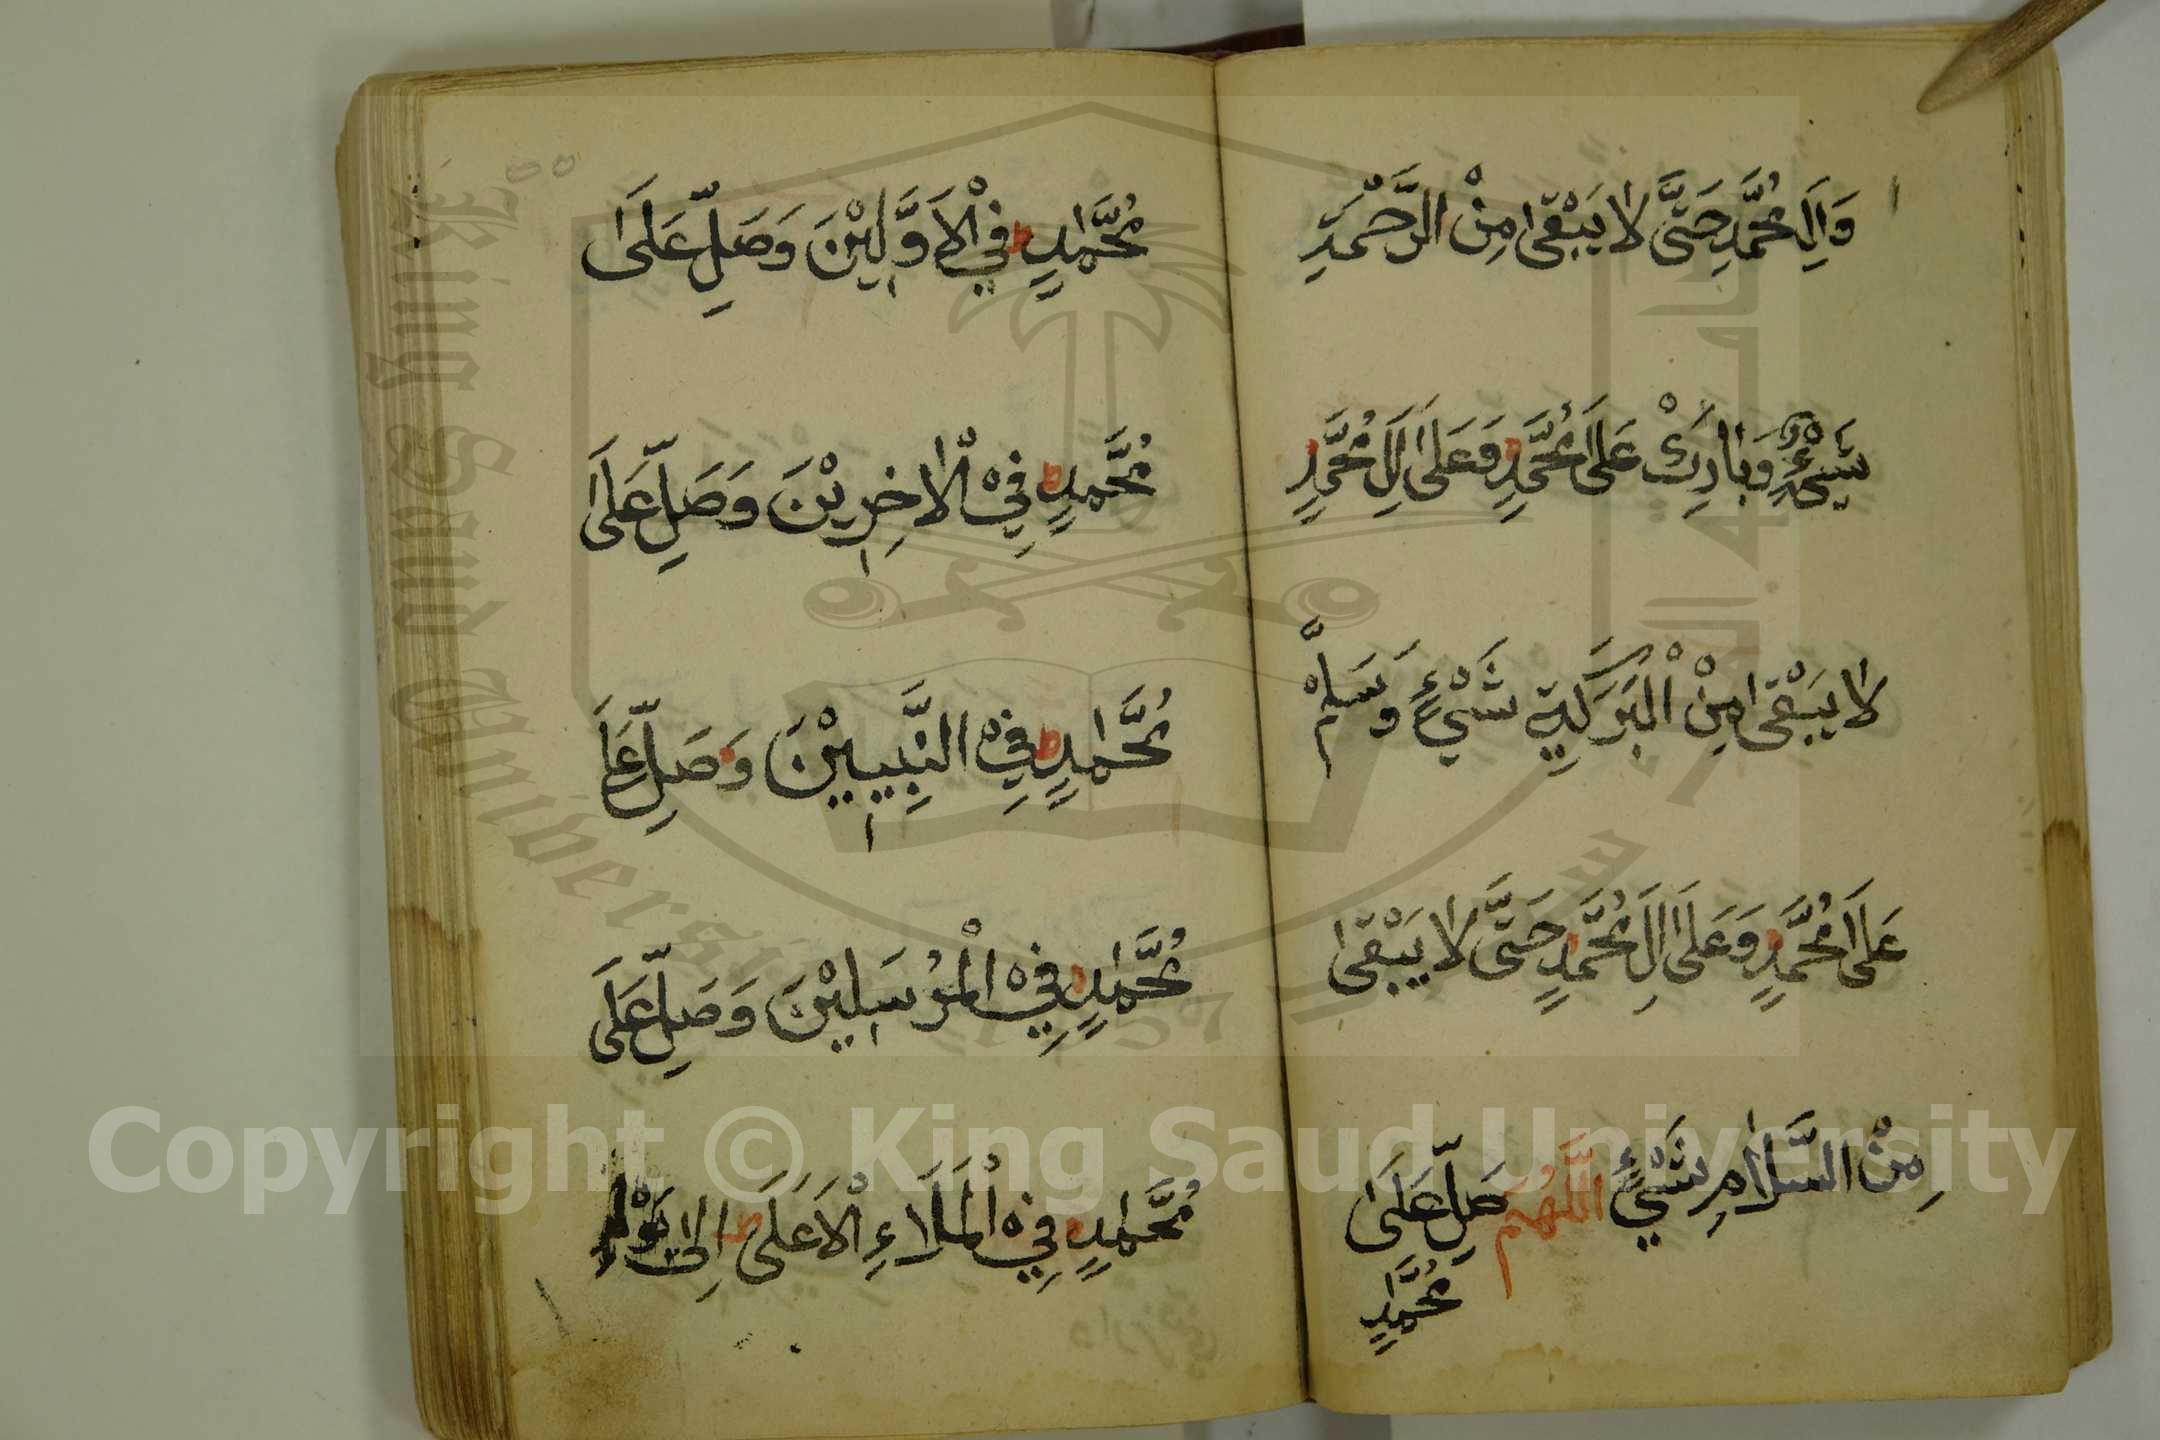 وَاَلِ مُحَمَّدٍ حَتَّى لَا يَبْقٰى مِنْ الرَّحْمَةِ
شَيْءٌ وَبَارِكْ عَلَى مُحَمَّدٍ وَعَلَى اَلِ مُحَمَّدٍ
لَا يَبْقٰى مِنْ الْبَرَكَةِ شَيْءٌ وَسَلِّمْ
عَلَى مُحَمَّدٍ وَعَلَى اَلِ مُحَمَّدٍ حَتَّى لَا يَبْقٰى
مِنْ السَّلَامِ شَيْءٌ اَللّٰهُمَّ صَلِّ عَلَى
مُحَمَّدٍ
مُحَمَّدٍ فِيْ الْاَوَّلِيْنَ وَصَلِّ عَلَى
مُحَمَّدٍ فِيْ الْاٰخِرِيْنَ وَصَلِّ عَلَى
مُحَمَّدٍ فِيْ النَّبِيِيْنَ وَصَلِّ عَلَى
مُحَمَّدٍ فِيْ الْمُرْسَلِيْنَ وَصَلِّ عَلَى
مُحَمَّدٍ فِيْ الْمَلَاءِ الْاَعْلَى اِلٰى يَوْمِ
King Saud University
1957
Copyright © King Saud University